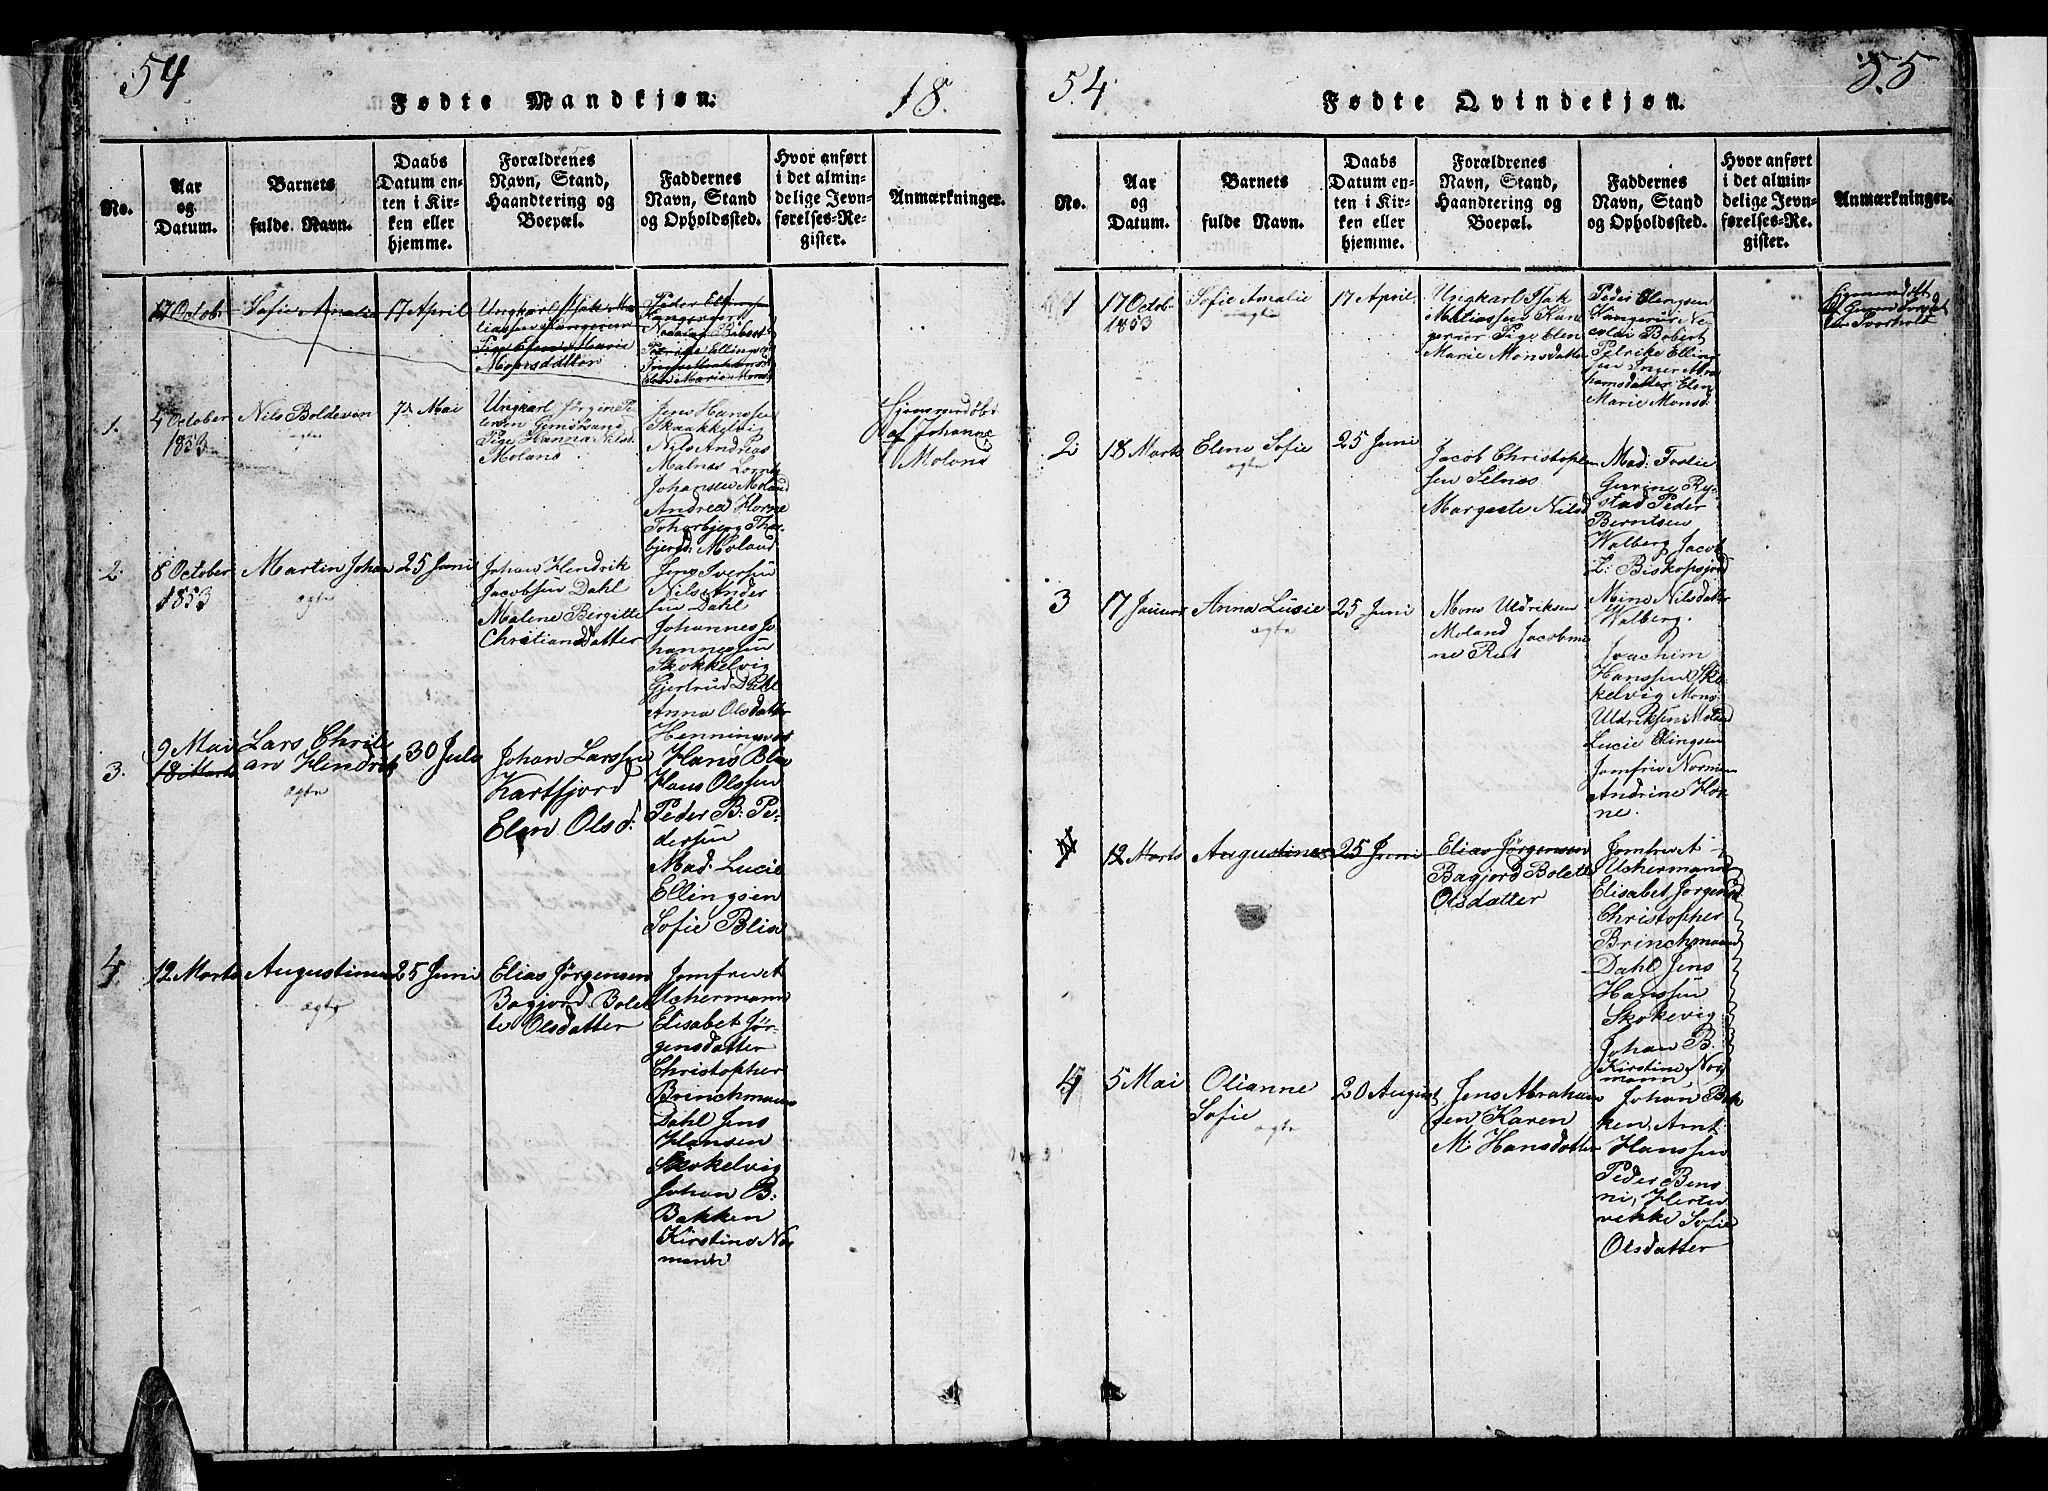 54
Fødte Mandkjøn.
18.
No.
Aar
og
Datum.
Barnets
fulde Navn.
Daabs
Datum en-
ten i Kir-
ken eller
hjemme.
Forældrenes
Navn, Stand,
Haandtering og
Boepæl.
Faddernes
Navn, Stand
og Opholdssted.
Hvor anført
i det almin-
delige Jevn-
førelses-Re-
gister.
Anmærkninger.
17 Octobr
Sofie Amalie
17 April
Ungkarl Isak Ma
Pige Elen Marie
Monsdatter
Peder Elingsen
Elen Marie Mons
1.
4 October
1853
Nils Boldevin
ægte
7de Mai
Ungkarl Jørgin Pe
tersen
Pige Hanna Nilsd.
Moland
Jens Hansen
Skaakkelvig
Nils Andreas
Malnæs
Johansen Moland
Andrea Horne
bjergd. Moland
Hjemmedøbt
af Johanne
Moland
2.
8 October
1853
Martin Johan
ægte
25 Juni
Johan Hendrik
Jacobsen Dahl
Malene Bergitte
Christiansdatter
Jens Iversen
Nils Ander
sen Dahl
Johannes Jo
hannessen
Skokkelvig
Gjertrud Dahl
Anna Olsdatter
Henningsvær
3.
9 Mai
18 Marts
Lars Chrili
an Hindrik
ægte
30 Juli
Johan Larssen
Kartfjord
Elen Olsd:
Hans Blix
Hans Olssen
Peder B. Pe-
dersen
Mad. Lucie
Ellingsen
Sofie Blix
4.
12 Marts
Augustinus
ægte
25 Juni
Elias Jørgensen
Bogjord Bolet
te Olsdatter
Jomfru A
Uchermann
Elisabet Jør-
gensdatter
Christopher
Brinchmann
Dahl Jens
Hansen
Skokelvig
Johan B:
Bakken
Kirstine Nor
mann
54
Fødte Qvindekjøn.
55
No.
Aar
og
Datum.
Barnets
fulde Navn.
Daabs
Datum en-
ten i Kir-
ken eller
hjemme.
Forældrenes
Navn, Stand,
Haandtering og
Boepæl.
Faddernes
Navn, Stand
og Opholdssted.
Hvor anført
i det almin-
delige Jevn-
førelses-Re-
gister.
Anmærkninger.
1
17 Octob
1853
Sofie Amalie
17 April
Ungkarl Isak
Matiassen Kan
gerur Pige Elen
Marie Monsdatter
Peder Elingsen
Kangerur Ne
colai Bobert
Petrike Elling
sen Inger Abra
hamsdatter Elen
Marie Monsd.
2
18 Marts
Elen Sofie
ægte
25 Juni
Jacob Christoph
sen Selnæs
Margrete Nilsd
Mad: Foslie
Gurine Ry-
stad Peder
Berntsen
Walberg Jacob
L: Biskopsjord
Mine Nilsdatter
Walberg.
3
17 Januar
Anna Lusie
ægte
25 Juni
Mons Uldriksen
Moland Jacobmi
ne Rist
Joachim
Hanssen Sko
kelvig Mons
Uldriksen Moland
Lucie Elingsen
Jomfru Norman
Andrine Hor
ne.
12 Marts
Augustinus
25 Juni
Elias Jørgensen
Bagjord Bolette
Olsdatter
Jomfru A
Uchermann
Elisabet Jørgensd
Christopher
Brinchmann
Dahl Jens
Hanssen
Skokevig
Johan B.
Kirstine Nor
mann
4
5 Mai
Olianne
Sofie
ægte
20 August
Jens Abraham
sen Karen
M. Hansdatter
Johan Bak
ken, Amt.
Hanssen
Peder Bens
Sofie
Olsdatter